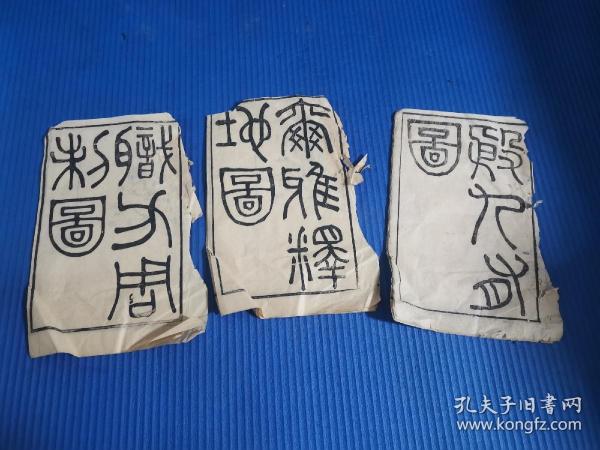 職方周
制圖
爾雅釋
地圖
殷九有
圖
孔夫子旧書网
www.kongfz.com